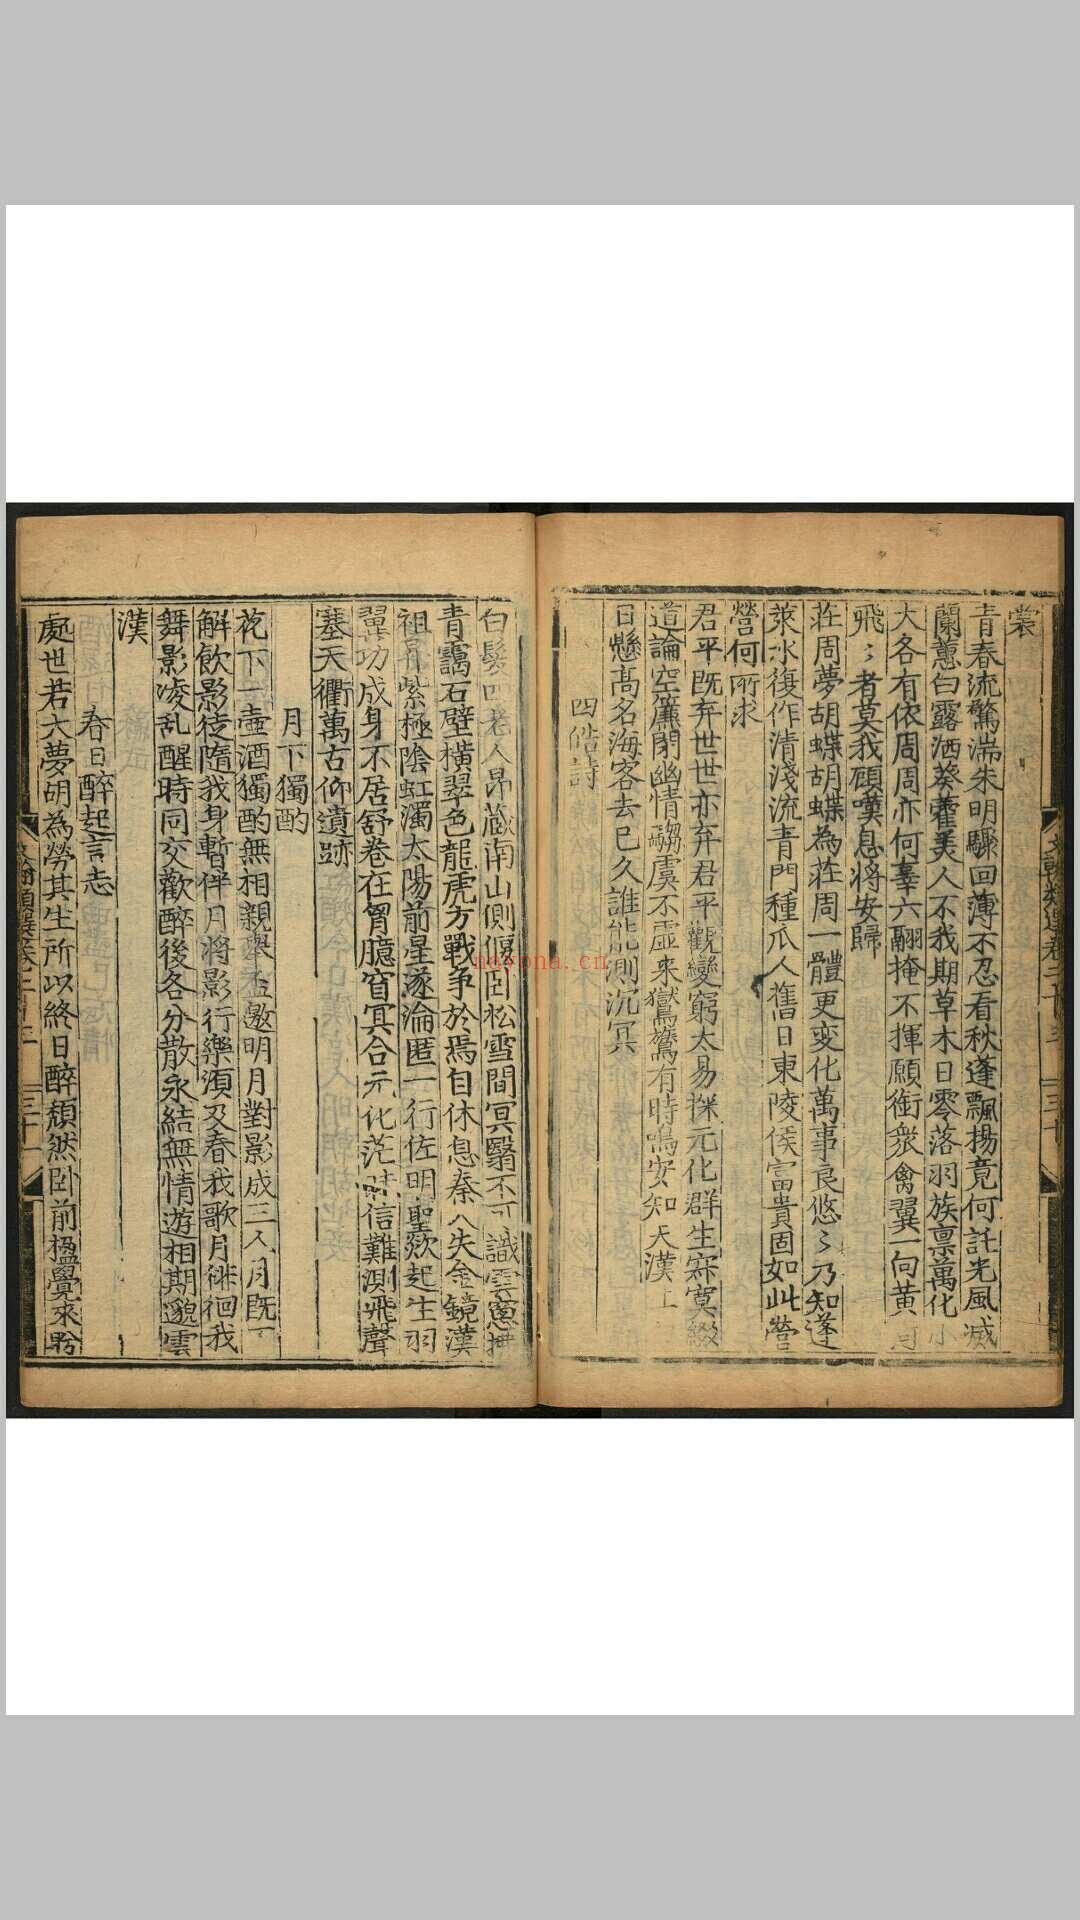 裳
青春流驚湍朱明驟回薄不忍看秋蓬飄揚竟何託光風滅
蘭蕙白露洒葵藿美人不我期草木日零落羽族禀萬化小
大各有依周周亦何辜六翮掩不揮願銜衆禽翼一向黃河
飛飛者莫我顧嘆息將安歸
莊周夢胡蝶胡蝶為莊周一體更変化萬事良悠〻乃知蓬
萊水復作清淺流青門種瓜人舊日東陵侯富貴固如此營
營何所求
君平既弃世世亦弃君平觀變窮太易探元化群生寂寞綴
道論空簾閉幽情騶虞不虛來鸑鷟有時鳴安知天漢上
日懸高名海客去已久誰能測沉冥
四皓詩
白髮四老人昂藏南山側偃卧松雪間冥翳不可識雲窻拂
青靄石壁橫翠色龍虎方戰争於焉自休息秦人失金鏡漢
祖昇紫極陰虹濁太陽前星遂淪匿一行佐明聖欻起生羽
翼功成身不居舒卷在胷臆窅冥合元化茫昧信難測飛聲
塞天衢萬古仰遺跡
月下獨酌
花下一壺酒獨酌無相親舉盃邀明月對影成三人月既不
解飲影徒隨我身暫伴月將影行樂須及春我歌月徘徊我
舞影凌乱醒時同交歡醉後各分散永結無情遊相期邈雲
漢
春日醉起言志
處世若大夢胡為勞其生所以終日醉頹然卧前楹覺來盻
文翰類選卷二十三
三十
三十一
nayona.cn